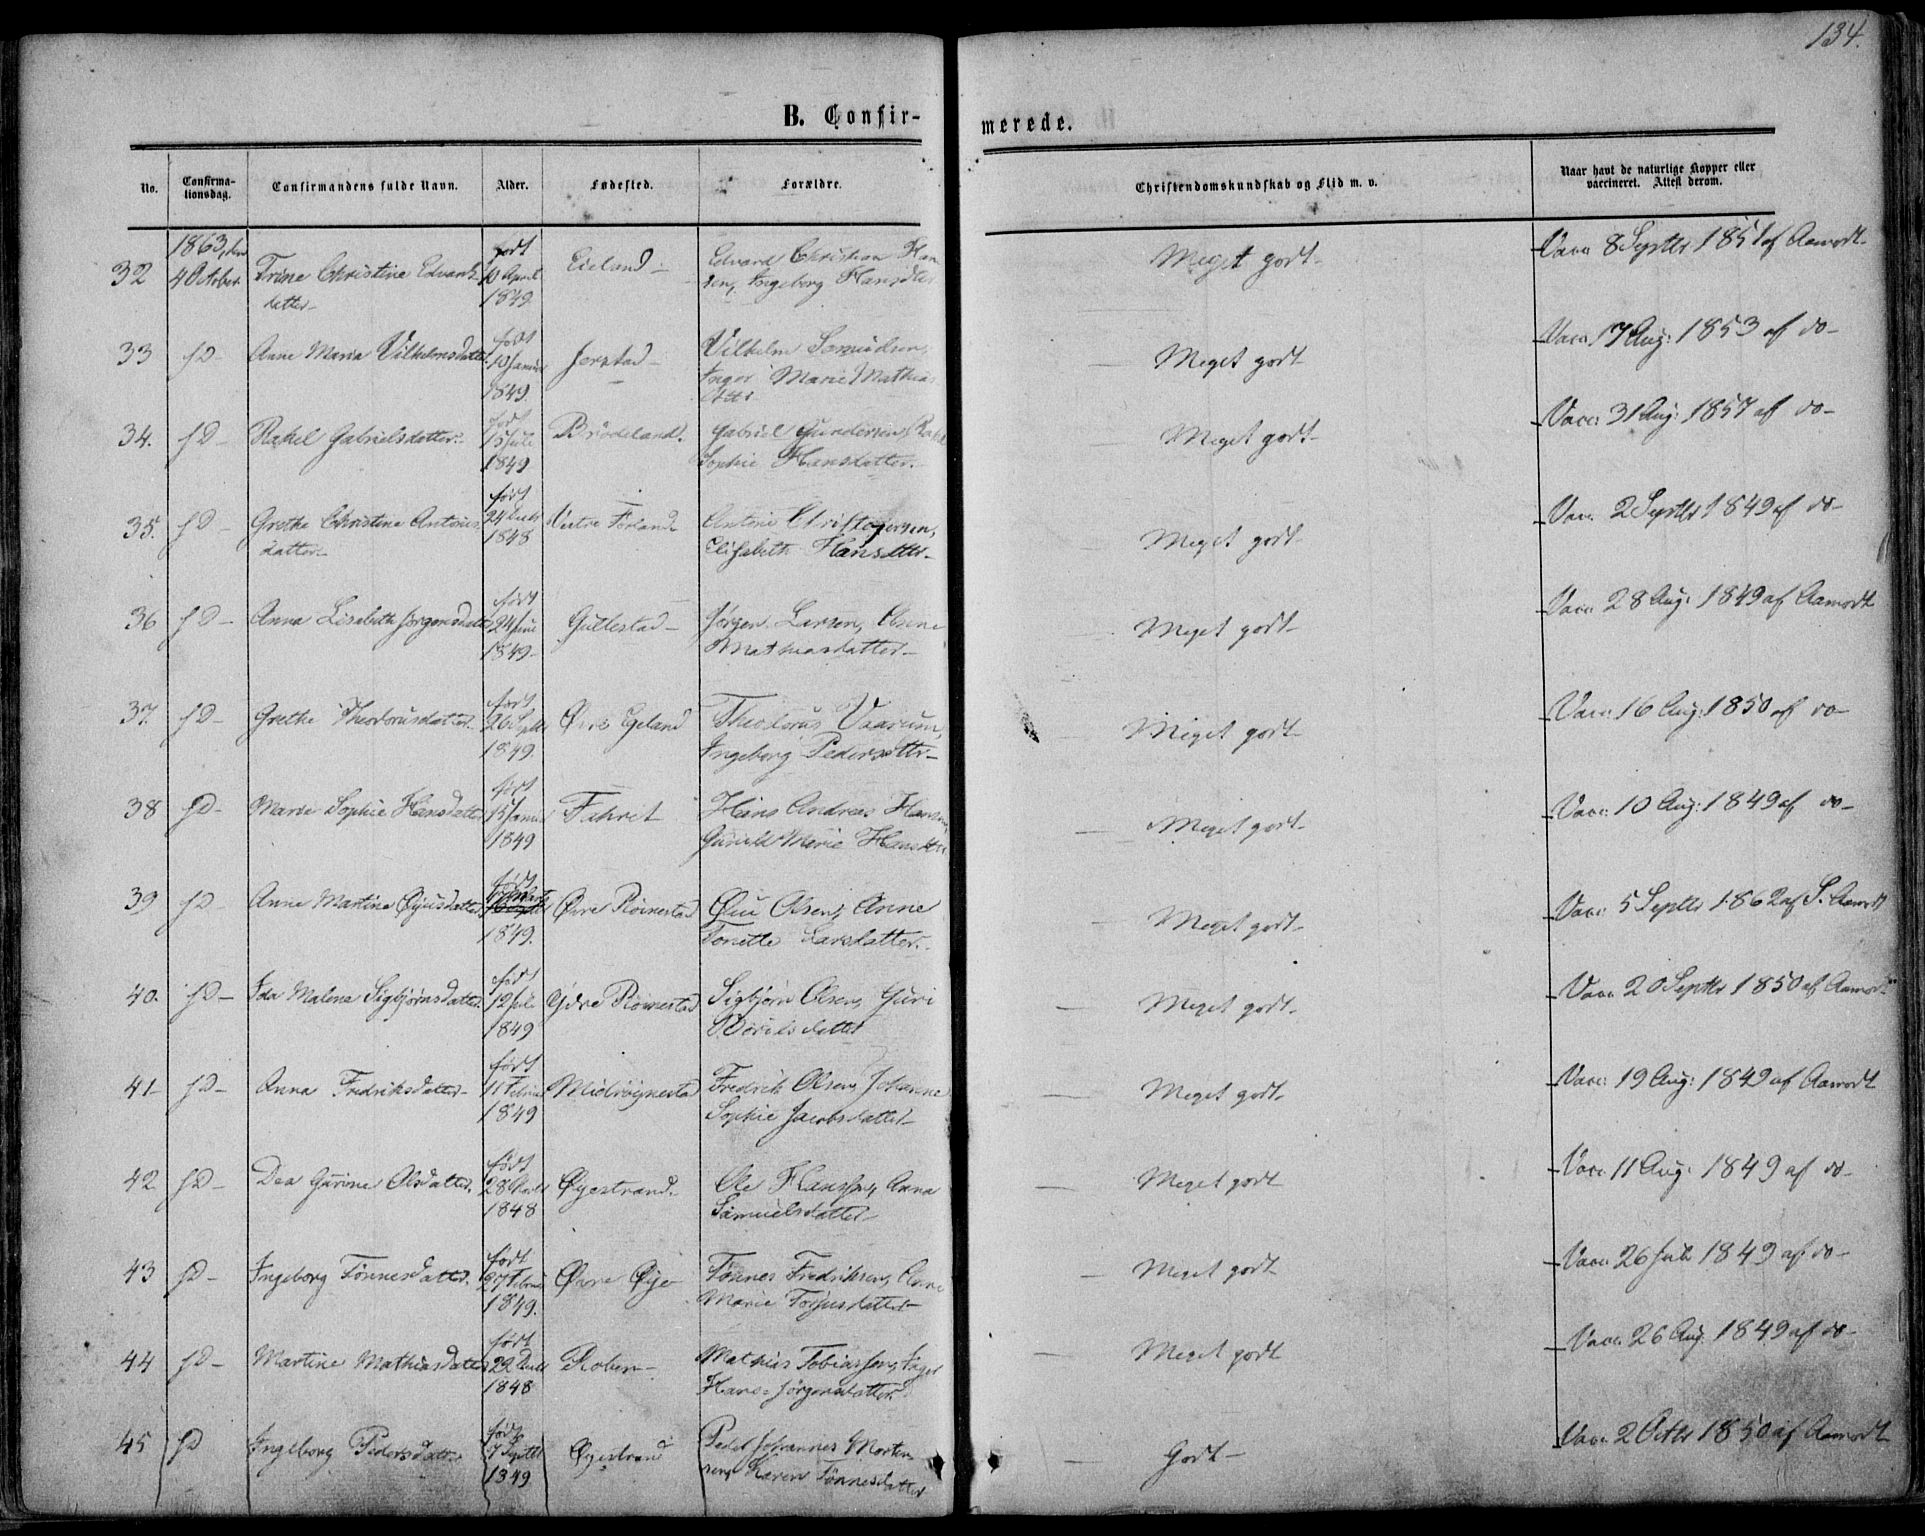 134.
B. Confir-
merede.
No.
Confirma-
tionsdag.
Confirmandens fulde Navn.
Alder.
Fødested.
Forældre.
Christendomskundskab og Flid m. v.
Naar havt de naturlige Kopper eller
vaccineret. Attest derom.
1863, den
32 4 October Trine Christine Edvards født Eieland - Edvard Christian Han Meget godt- Vacc: 8 Septbr 1851 af Aamodt-
datter- 10 April sen, Ingeborg Hansdtter
1849.
33 do- Anne Maria Vilhelmsdatter født Jerstad- Vilhelm Meget godt Vacc: 17 Aug: 1853 af do-
10 Januar Inger Marie Mathias
1849. dttr
34. do- Rakel Gabrielsdatter- født Gabriel Gundersen, Rakel Meget godt- Vacc: 31 Aug: 1857 af do-
15 Juli Sophie Hansdatter-
1849
35. do- Grethe Christine Antonis født Vestre Førland Antoni Christophersen, Meget godt Vacc: 2 Septbr 1849 af do-
datter- 24 Decbr Elisabeth Hansdtter-
1848
36 do- Anna Lisabeth Jørgensdatter født Gullestad- Jørgen Larsen, Anne Meget godt- Vacc: 28 Aug: 1849 af Aamodt
24 Juni Mathiasdatter-
1849-
37. do- Grethe Theodorusdatter født Øvre Egeland Theodorus Meget godt- Vacc: 16 Aug: 1850 af do-
26 Septbr Ingeborg Pedersdttr-
1849.
38 do- Marie Sophie Hansdatter født Hans Andreas Hansen, Meget godt- Vacc: 10 Aug: 1849 af do-
15 Januar Gunild Marie Hansdttr
1849
39 do- Anne Martine Øyusdatter født Øvre Röinestad Øiu Olsen, Anne Meget godt- Vacc: 5 Septbr 1862 af S. Aamodt
1849. Tonette Larsdatter-
40. do- Ida Malena Sigbjørnsdatter født Ydre Röinestad Sigbjørn Olsen, Guri Meget godt- Vacc: 20 Septbr 1850 af Aamodt-
19 Juli Börilsdatter
1849
41- do- Anna Fredriksdatter- født Midtröynestad Fredrik Olsen, Johanne Meget godt- Vacc: 19 Aug: 1849 af Aamodt
11 Februar Sophie Jacobsdatter-
1849
42 do- Dea Gurine Olsdatter. født Øyestrand. Ole Hanssen, Anna Meget godt Vacc: 11 Aug: 1849 af do-
28 Samuelsdatter-
1848
43 do- Ingeborg Tønnesdatter. født Øvre Øye- Tønnes Fredriksen, Anne Meget godt Vacc: 26 Juli 1849 af do-
27 Februar Marie Torjusdatter-
1849.
44 do- Martine Mathiasdatter født Mathias Tobiassen, Inger Meget godt Vacc: 26 Aug: 1849 af do-
29 Decbr Hans-Jørgensdatter
1848
45 do Ingeborg Pedersdatter født Øyestrand Peder Johannes Morten Godt- Vacc: 2 Octbr 1850 af Aamodt
7 Septbr sen, Karen Tønnesdatter
1849